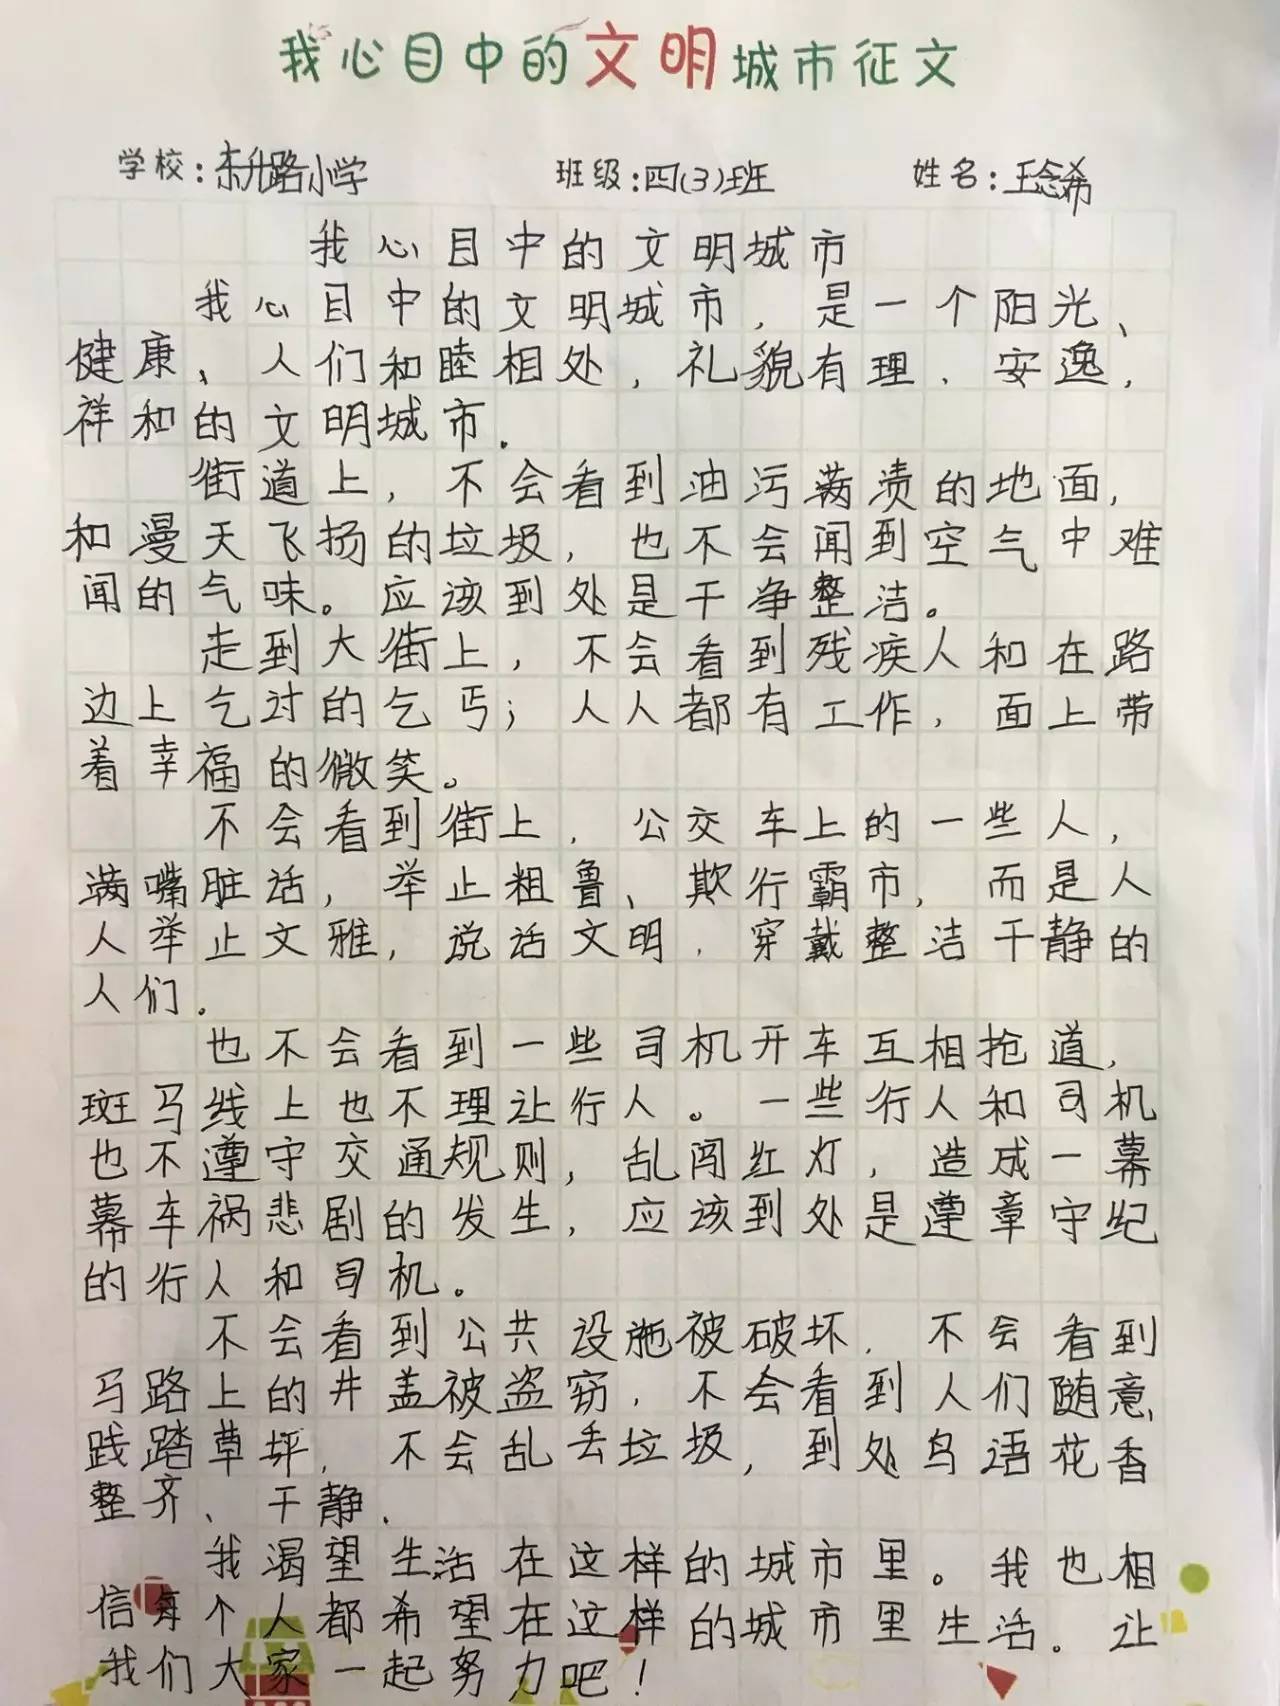 我心目中的文明城市征文
学校:东升路小学 班级:四(3)班 姓名:王念希
我心目中的文明城市
我心目中的文明城市，是一个阳光、
健康、人们和睦相处，礼貌有理，安逸，
祥和的文明城市.
街道上，不会看到油污满渍的地面，
和漫天飞扬的垃圾，也不会闻到空气中难
闻的气味。应该到处是干净整洁。
走到大街上，不会看到残疾人和在路
边上乞讨的乞丐；人人都有工作，面上带
着幸福的微笑。
不会看到街上，公交车上的一些人，
满嘴脏话，举止粗鲁、欺行霸市，而是人
人举止文雅，说话文明，穿戴整洁干静的
人们。
也不会看到一些司机开车互相抢道，
斑马线上也不理让行人。一些行人和司机
也不遵守交通规则，乱闯红灯，造成一幕
幕车祸悲剧的发生，应该到处是遵章守纪
的行人和司机。
不会看到公共设施被破坏，不会看到
马路上的井盖被盗窃，不会看到人们随意
践踏草坪，不会乱丢垃圾，到处鸟语花香
整齐、干静.
我渴望生活在这样的城市里。我也相
信每个人都希望在这样的城市里生活。让
我们大家一起努力吧！